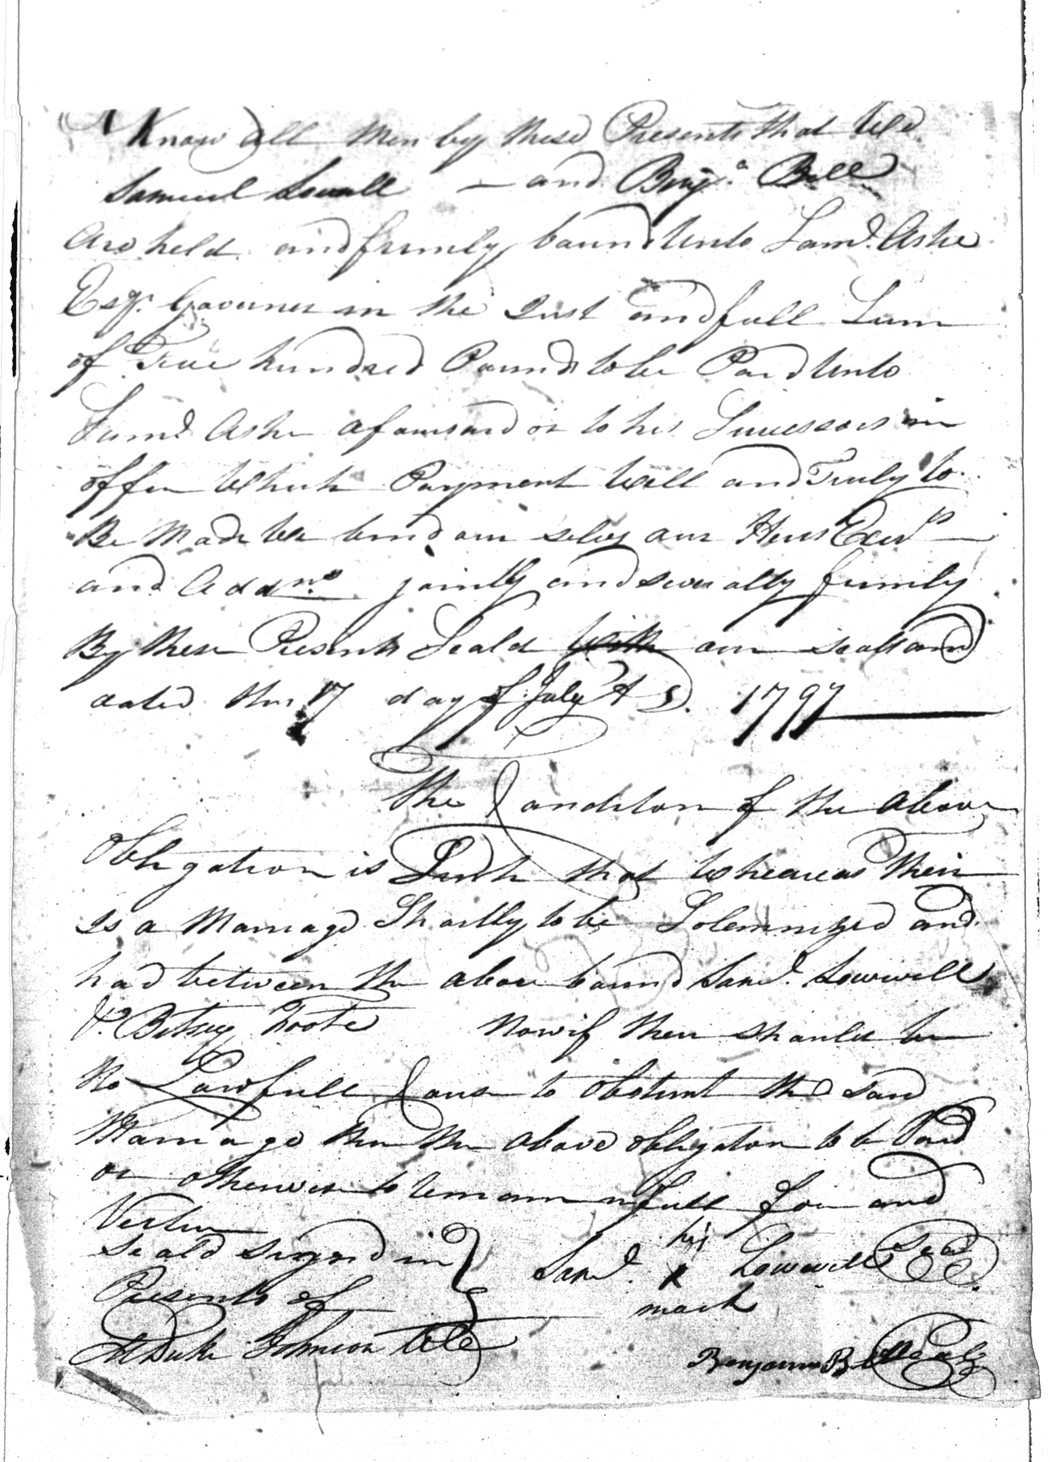 Know all Men by these Presents that We
Samuel Sowell — and Benj.a Bell
Are held and firmly bound Unto Sam.l Ashe
Esqr. Governer in the Just and full Sum
of Five hundred Pounds to be Paid Unto
Sam.l Ashe aforesaid or to his Successors in
offen Which Payment Well and Truly to
Be Made We bind our selves our Heirs Exers
and Addns. jointly and severally firmly
By these Presents Seald With our seals and
dated this 17 day of July A D. 1797
The Condition of the above
Obligation is Such that Wheareas Their
Is a Marriage Shortly to be Solemnized and
had between the above bound Sam.l Sowwell
& Betsey Foote Now if their should be
No Lawfull Cause to obstruct the said
Marriage then the above obligation to be Void
or otherwise to remain in full force and
Vertue
Seald Signd in
Presents of
Saml. his X mark Sowwell Seal
Duke Johnson
Benjamin Bell Seal